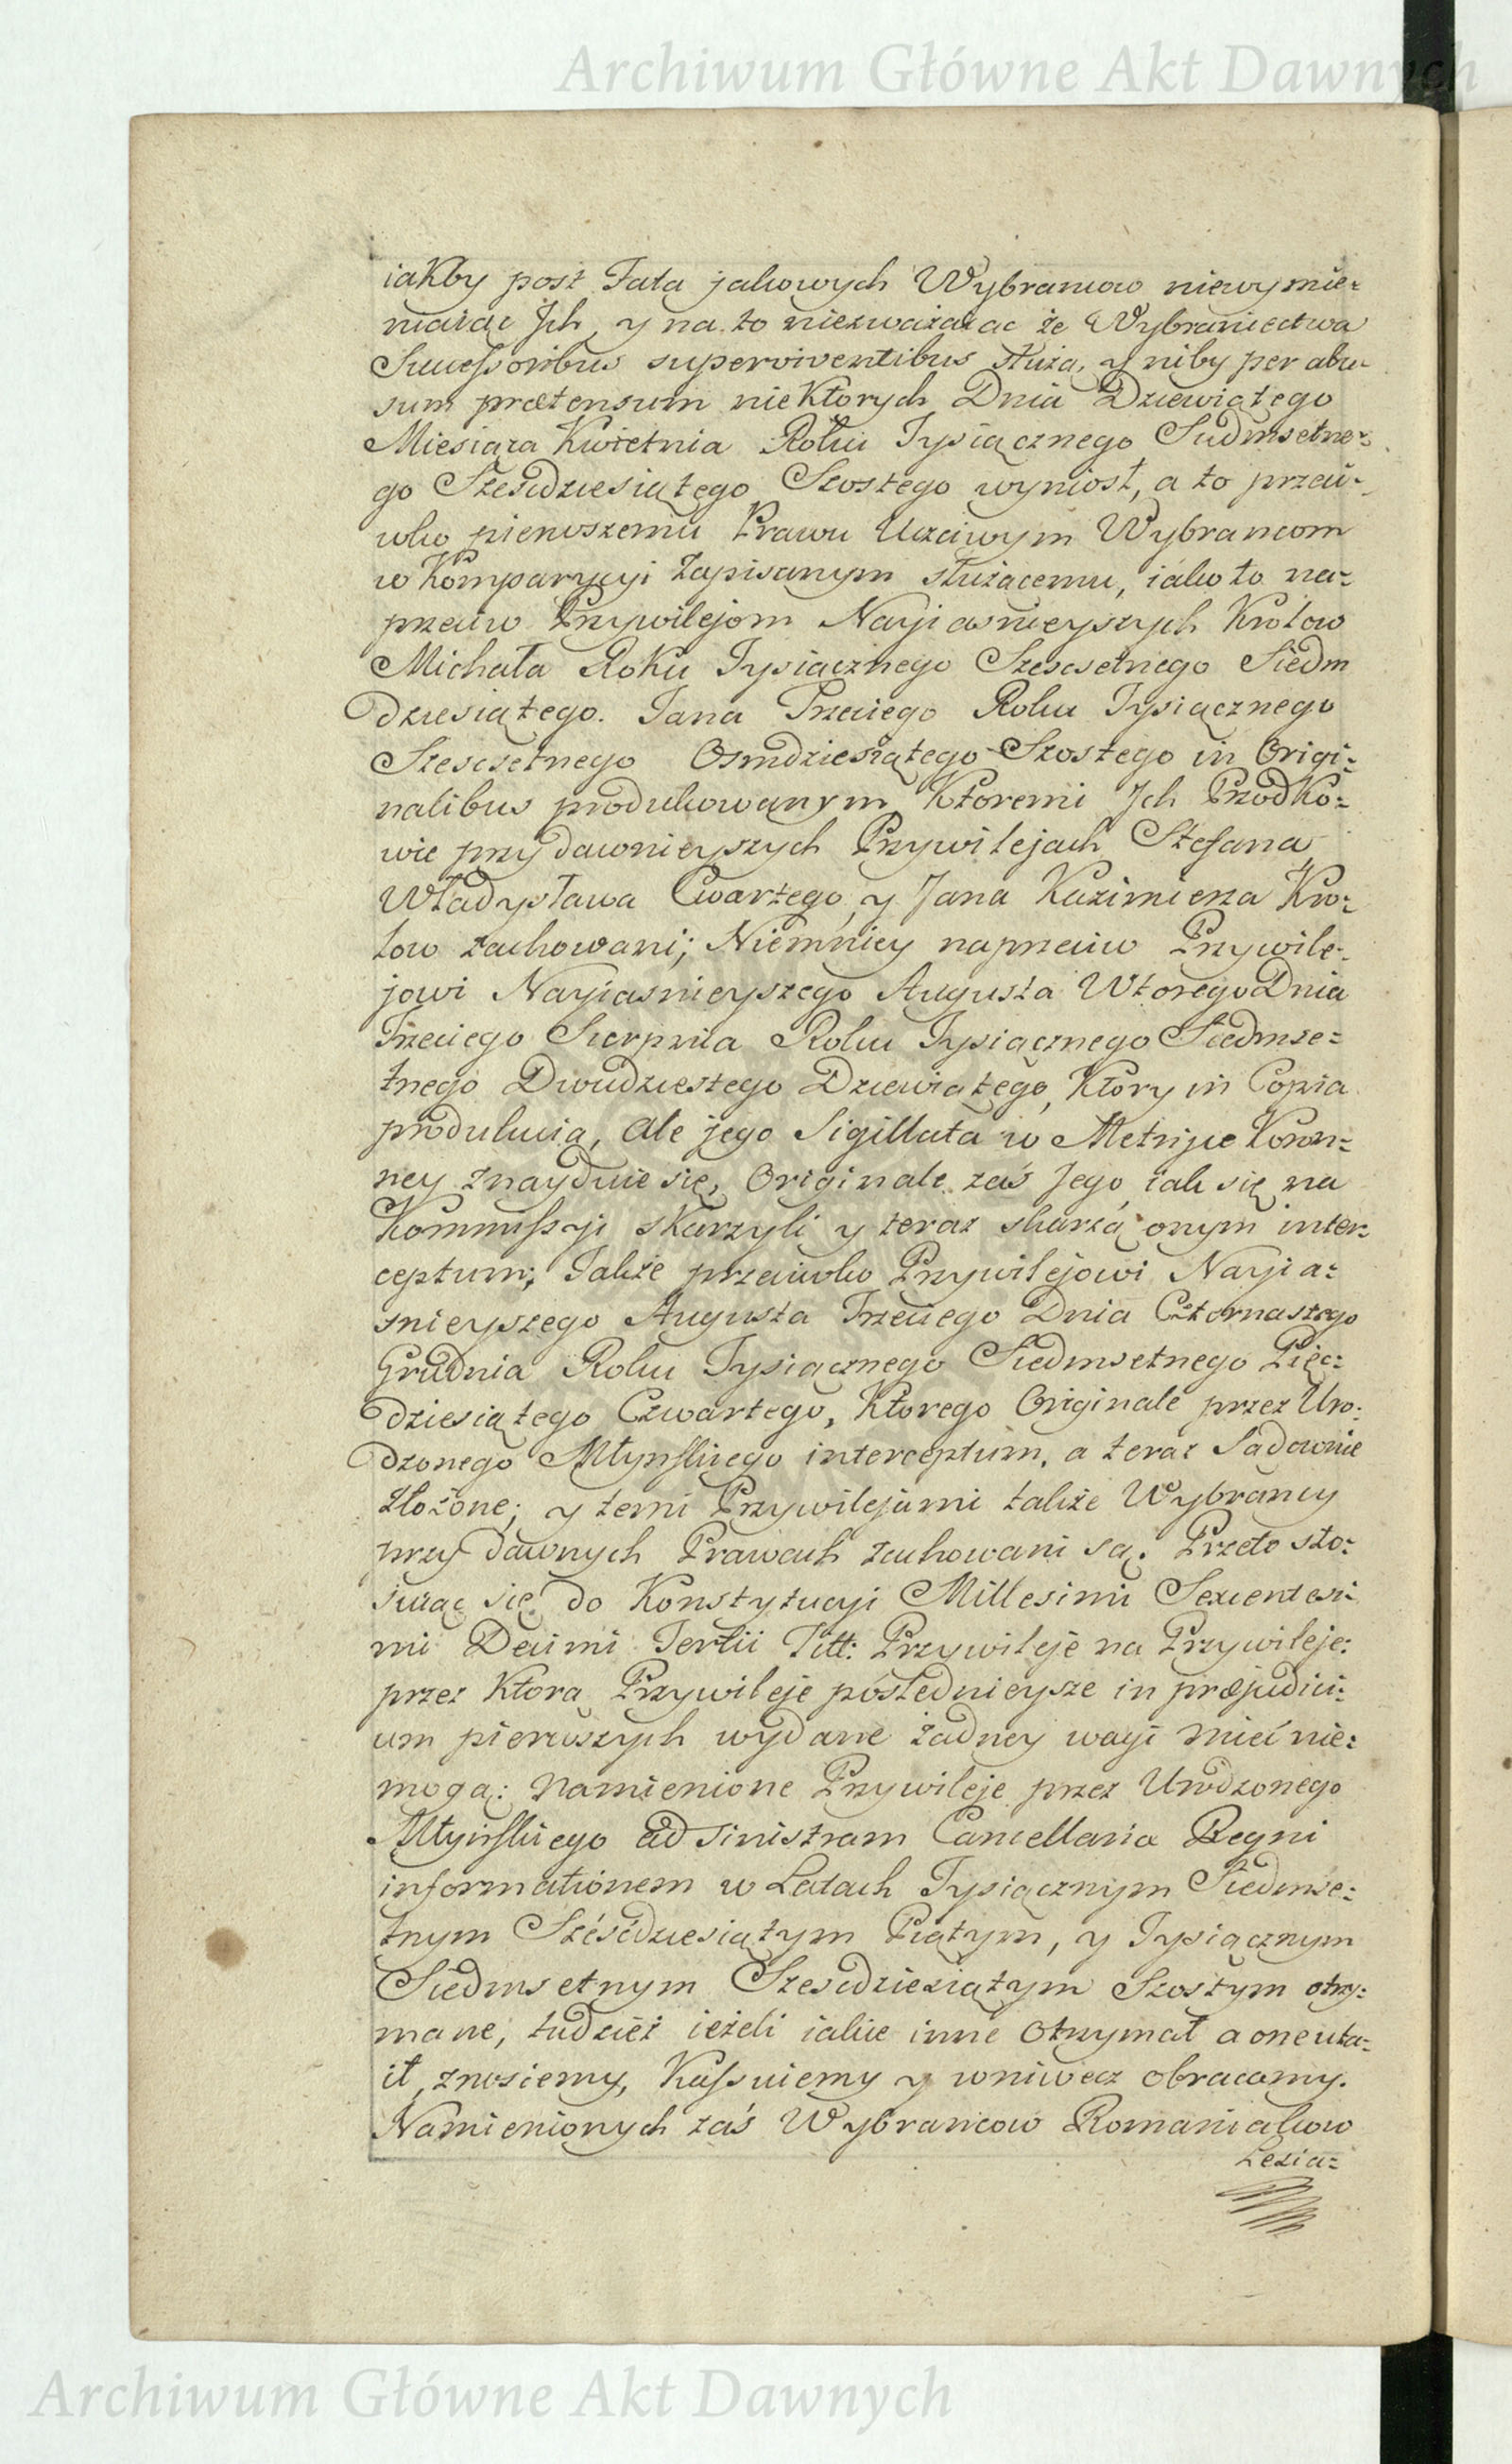 Archiwum Główne Akt Dawnych
iakby post Fata jakowych Wybrancow niewymie=
niaiąc Jch, y na to niezwazaiąc że Wybraniectwa
Successoribus superviventibus służą, y niby per abu=
sum prætensum niektorych Dnia Dziewiątego
Miesiąca Kwietnia Roku Tysiącznego Siedmsetne=
go Sześćdziesiątego Szostego wyniosł, a to przeci=
wko pierwszemu Prawu Uczciwym Wybrancom
w Komparycyi Zapisanym służacemu, iako to na=
przeciw Przywilejom Nayiasnieyszych Krolow
Michała Roku Tysiącznego Szescsetnego Siedm
dziesiątego. Jana Trzeciego Roku Tysiącznego
Szescsetnego Osmdziesiątego Szostego in Origi=
nalibus produkowanym, Ktoremi Jch Przodko=
wie przy dawnieyszych Przywilejach Stefana
Władysława Czwartego, y Jana Kazimierza Kro=
low zachowani; Niemniey naprzeciw Przywile=
jowi Nayiasnieyszego Augusta Wtorego Dnia
Trzeciego Sierpnia Roku Tysiącznego Siedmse=
tnego Dwudziestego Dziewiątego, Ktory in Copia
produkuią, ale jego Sigillata w Metryce Koron=
ney znayduie się, Originale zaś Jego iak się na
Kommissyi skarzyli y teraz skarzą onym inter=
ceptum; Także przeciwko Przywilejowi Nayia=
snieyszego Augusta Trzeciego Dnia Czternastego
Grudnia Roku Tysiącznego Siedmsetnego Pięć=
dziesiątego Czwartego, Ktorego Originale przez Uro=
dzonego Młynskiego interceptum, a teraz Sadownie
złożone; y temi Przywilejami także Wybrancy
przy dawnych Prawach zachowani są. Przeto sto=
suiąc się do Konstytucyi Millesimi Sexcentesi=
mi Decimi Tertii Titt: Przywileje na Przywileje:
przez Ktora Przywileje poslednieysze in præjudici=
um pierwszych wydane żadney wagi mieć nie=
mogą: Namienione Przywileje przez Urodzonego
Młynskiego ad sinistram Cancellaria Regni
informationem w Latach Tysiącznym Siedmse=
tnym Sześćdziesiątym Piątym, y Tysiącznym
Siedmsetnym Szescdziesiątym Szostym otrzy=
mane, tudzież ieżeli iakie inne otrzymał a one uta=
ił, znosiemy, Kassuiemy y wniwecz obracamy.
Namienionych zaś Wybrancow Romaniakow
Lesia=
Archiwum Główne Akt Dawnych